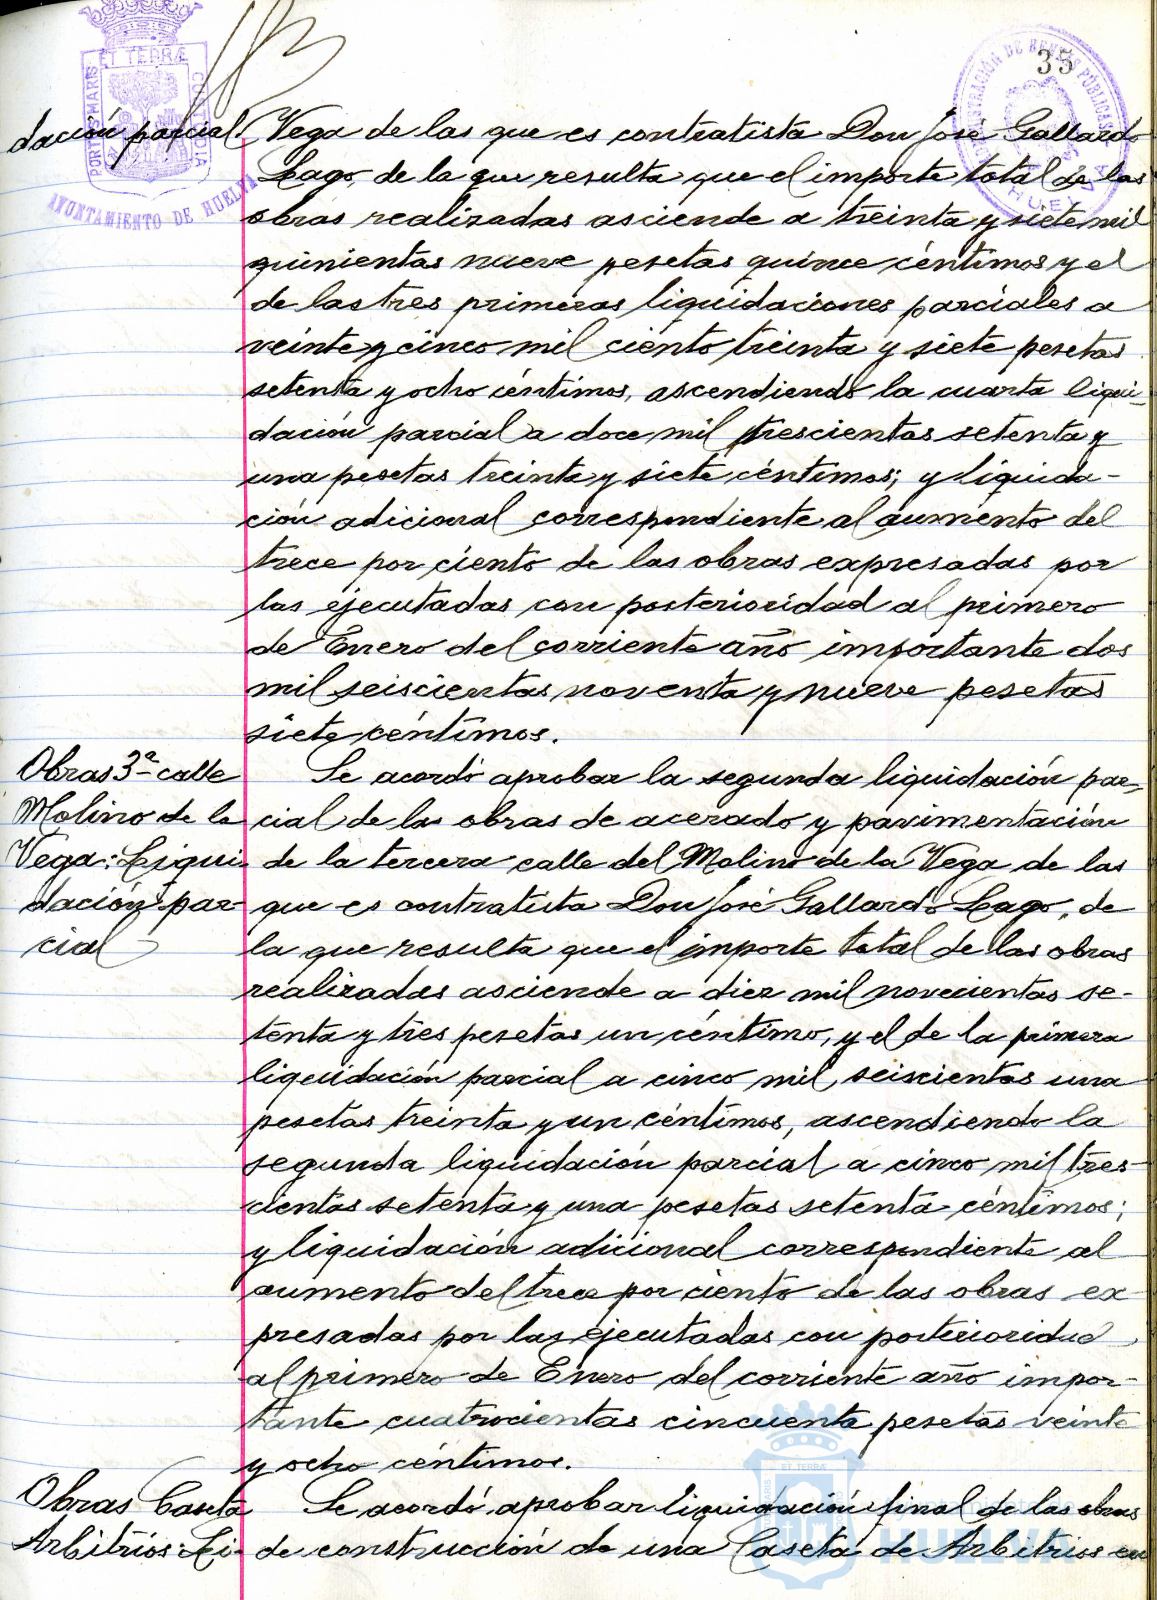 35
PORTUS MARIS ET TERRÆ CUSTODIA
AYUNTAMIENTO DE HUELVA
ADMINISTRACIÓN DE RENTAS PÚBLICAS
HUELVA
dación parcial
Vega de las que es contratista Don José Gallardo
Lago, de la que resulta que el importe total de las
obras realizadas asciende a treinta y siete mil
quinientas nueve pesetas quince céntimos y el
de las tres primeras liquidaciones parciales a
veinte y cinco mil ciento treinta y siete pesetas
setenta y ocho céntimos, ascendiendo la cuarta liqui-
dación parcial a doce mil trescientas setenta y
una pesetas treinta y siete céntimos; y liquida-
ción adicional correspondiente al aumento del
trece por ciento de las obras expresadas por
las ejecutadas con posterioridad al primero
de Enero del corriente año importante dos
mil seiscientas noventa y nueve pesetas
siete céntimos.
Obras 3ª calle
Molino de la
Vega: Liqui-
dación par-
cial
Se acordó aprobar la segunda liquidación par-
cial de las obras de acerado y pavimentación
de la tercera calle del Molino de la Vega de las
que es contratista Don José Gallardo Lago, de
la que resulta que el importe total de las obras
realizadas asciende a diez mil novecientas se-
tenta y tres pesetas un céntimo, y el de la primera
liquidación parcial a cinco mil seiscientas una
pesetas treinta y un céntimos, ascendiendo la
segunda liquidación parcial a cinco mil tres-
cientas setenta y una pesetas setenta céntimos;
y liquidación adicional correspondiente al
aumento del trece por ciento de las obras ex
presadas por las ejecutadas con posterioridad
al primero de Enero del corriente año impor-
tante cuatrocientas cincuenta pesetas veinte
y ocho céntimos.
Obras Caseta
Arbitrios: Li-
Se acordó aprobar liquidación final de las obras
de construcción de una Caseta de Arbitrios en
ET TERRÆ
HUELVA